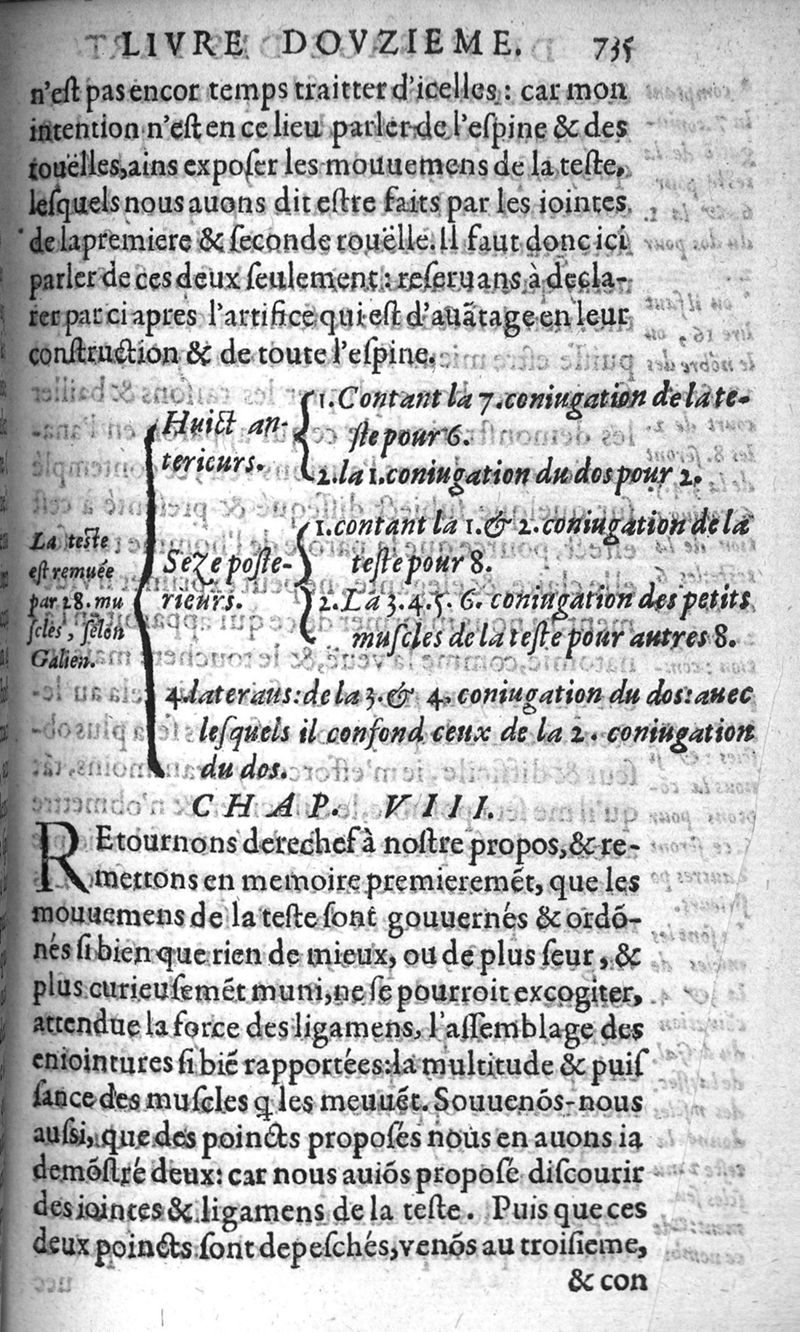 LIVRE DOVZIEME. 735
n'eſt pas encor temps traitter d'icelles : car mon
intention n'eſt en ce lieu parler de l'eſpine & des
rouëlles, ains expoſer les mouuemens de la teſte,
leſquels nous auons dit eſtre faits par les iointes
de la premiere & ſeconde rouëlle. Il faut donc ici
parler de ces deux ſeulement : reſeruans à decla-
rer par ci apres l'artifice qui eſt d'auãtage en leur
conſtruction & de toute l'eſpine.
La teſte
eſt remuée
par 28. mu
ſcles, ſelon
Galien.
Huict an-
terieurs.
1. Contant la 7. coniugation de la te-
ſte pour 6.
2. la 1. coniugation du dos pour 2.
Seze poſte-
rieurs.
1. contant la 1. & 2. coniugation de la
teſte pour 8.
2. La 3. 4. 5. 6. coniugation des petits
muſcles de la teſte pour autres 8.
4. lateraus: de la 3. & 4. coniugation du dos: auec
leſquels il confond ceux de la 2. coniugation
du dos.
CHAP. VIII.
REtournons derechef à noſtre propos, & re-
mettons en memoire premieremẽt, que les
mouuemens de la teſte ſont gouuernés & ordõ-
nés ſi bien que rien de mieux, ou de plus ſeur, &
plus curieuſemẽt muni, ne ſe pourroit excogiter,
attendue la force des ligamens, l'aſſemblage des
eniointures ſi biẽ rapportées: la multitude & puiſ
ſance des muſcles q̃ les meuuẽt. Souuenõs-nous
auſsi, que des poincts propoſés nous en auons ia
demõſtré deux: car nous auiõs propoſé diſcourir
des iointes & ligamens de la teſte. Puis que ces
deux poincts ſont depeſchés, venõs au troiſieme,
& con